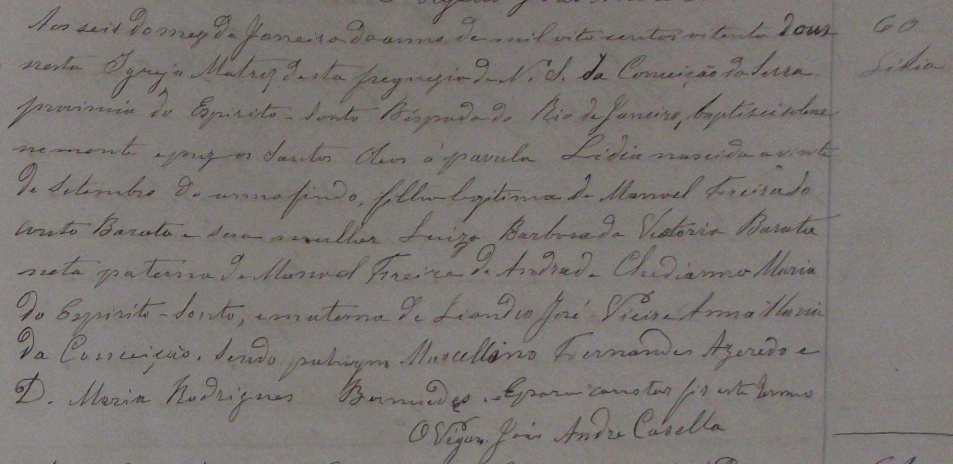 Aos seis do mez de Janeiro do anno de mil oito centos oitenta dous
60
nesta Igreja Matrez desta freguezia de N. S. da Conceição da Serra
Lidia
provincia do Espirito-Santo Bispado do Rio de Janeiro, baptisei solem
nemente e puz os Santos Oleos á parvula Lidia nascida a vinte
de Setembro do anno findo, filha legitima de Manoel Freire do
Couto Barata e sua mulher Luiza Barbosa da Victoria Barata
neta paterna de Manoel Freire de Andrade Maria
do Espirito-Santo, e materna de Liandro José Vieira Anna Maria
da Conceição. Sendo Marcellino Fernandes Azeredo e
D. Maria Rodrigues Bermudes. E para constar fiz este termo
O Vigario João Andre Casella